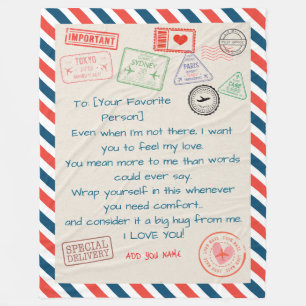 IMPORTANT
TOKYO
SYDNEY
PARIS
To [Your Favorite
Person]
Even when I'm not there, I want
you to feel my love.
You mean more to me than words
could ever say.
Wrap yourself in this whenever
you need comfort...
and consider it a big hug from me.
I LOVE YOU!
ADD YOU NAME
SPECIAL
DELIVERY